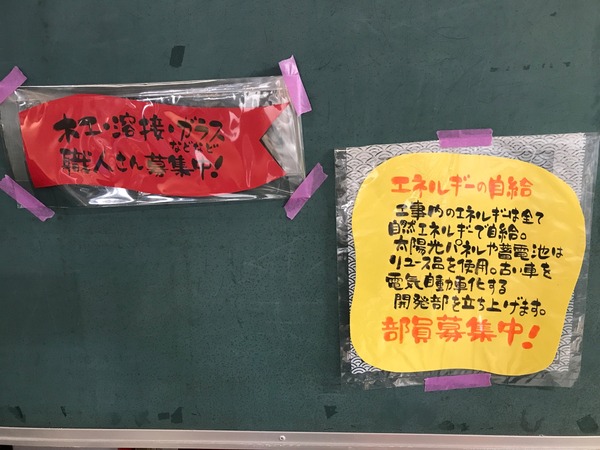 木工・溶接・ガラス
などなど
職人さん募集中!
エネルギーの自給
工事内のエネルギーは全て
自然エネルギーで自給。
太陽光パネルや蓄電池は
リユース品を使用。古い車を
電気自動車化する
開発部を立ち上げます。
部員募集中!